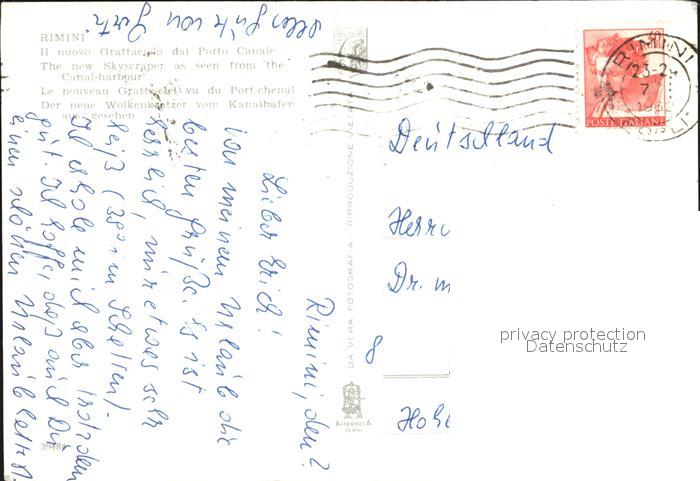 RIMINI
Il nuovo Grattacielo dal Porto Canale
The new Skyscraper as seen from the
Canal-harbour
Le nouveau Gratte-ciel vu du Port-chenal
Der neue Wolkenkratzer vom Kanalhafen
aus gesehen
Rimini, den
Lieber Erich!
Von meinem Urlaub die
besten Grüße. Es ist
herrlich, nur etwas sehr
heiß (38° im Schatten).
Ich erhole mich aber trotzdem
gut. Ich hoffe, daß auch Du
einen schönen Urlaub hattest.
Alles Gute von
DA VERA FOTOGRAFIA RIPRODUZIONE
39484
POSTE ITALIANE
RIMINI
23-24
Deutschland
Herrn
Dr. m
8
Hohe
privacy protection
Datenschutz